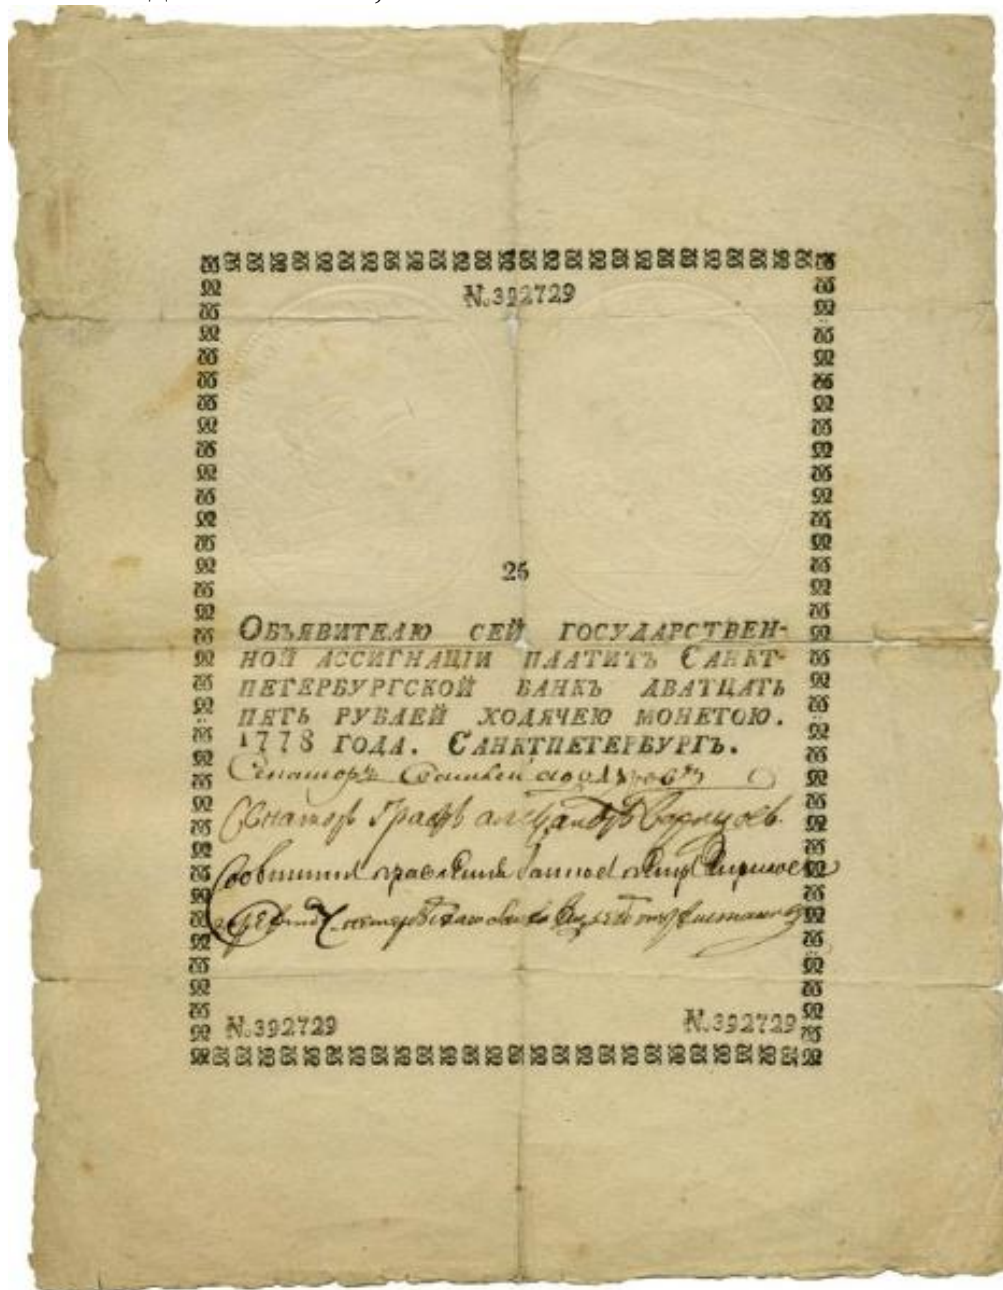 №392729
25
ОБЪЯВИТЕЛЮ СЕЙ ГОСУДАРСТВЕН-
НОЙ АССИГНАЦІИ ПЛАТИТЪ САНКТ-
ПЕТЕРБУРГСКОЙ БАНКЪ ДВАТЦАТЬ
ПЯТЬ РУБЛЕЙ ХОДЯЧЕЮ МОНЕТОЮ.
1778 ГОДА. САНКТПЕТЕРБУРГЪ.
Сенаторъ
Сенаторъ Графъ Александръ Воронцовъ
Совѣтникъ правленія банков
№392729 №392729